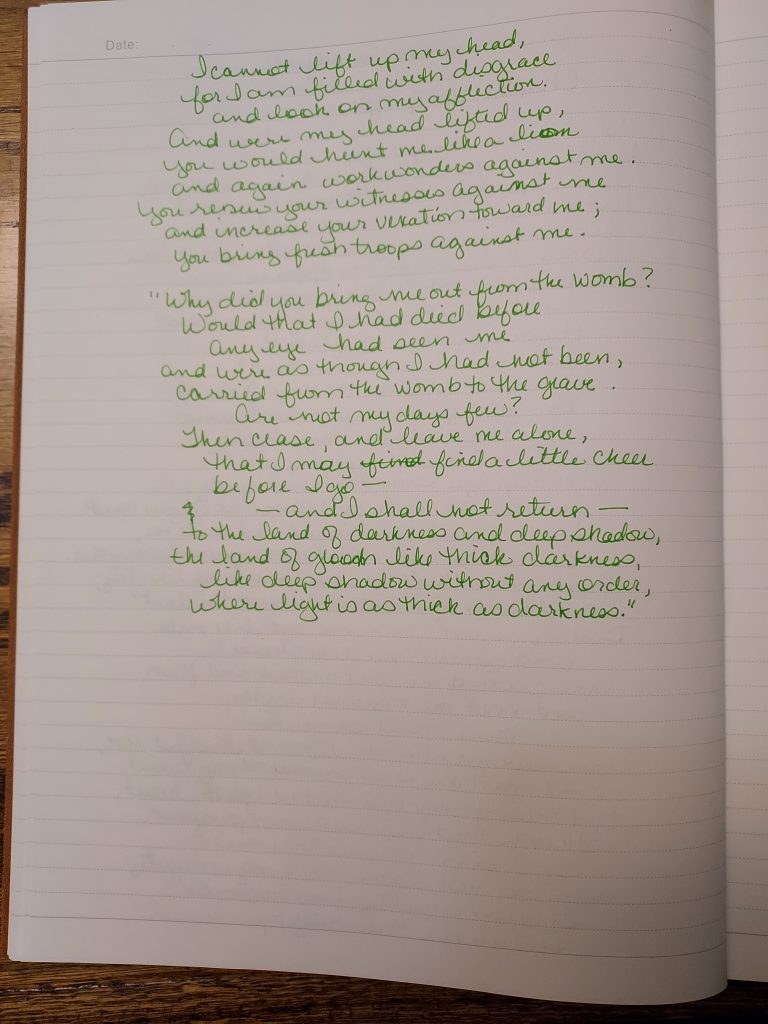 Date:
I cannot lift up my head,
for I am filled with disgrace
and look on my affliction.
And were my head lifted up,
you would hunt me like a lion
and again work wonders against me.
You renew your witnesses against me
and increase your vexation toward me;
you bring fresh troops against me.
"Why did you bring me out from the womb?
Would that I had died before
any eye had seen me
and were as though I had not been,
carried from the womb to the grave.
Are not my days few?
Then cease, and leave me alone,
that I may find find a little cheer
before I go —
— and I shall not return —
to the land of darkness and deep shadow,
the land of gloom like thick darkness,
like deep shadow without any order,
where light is as thick as darkness."